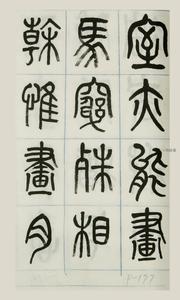 室亦能畫
馬窮殊相
幹惟畫肉
P-177